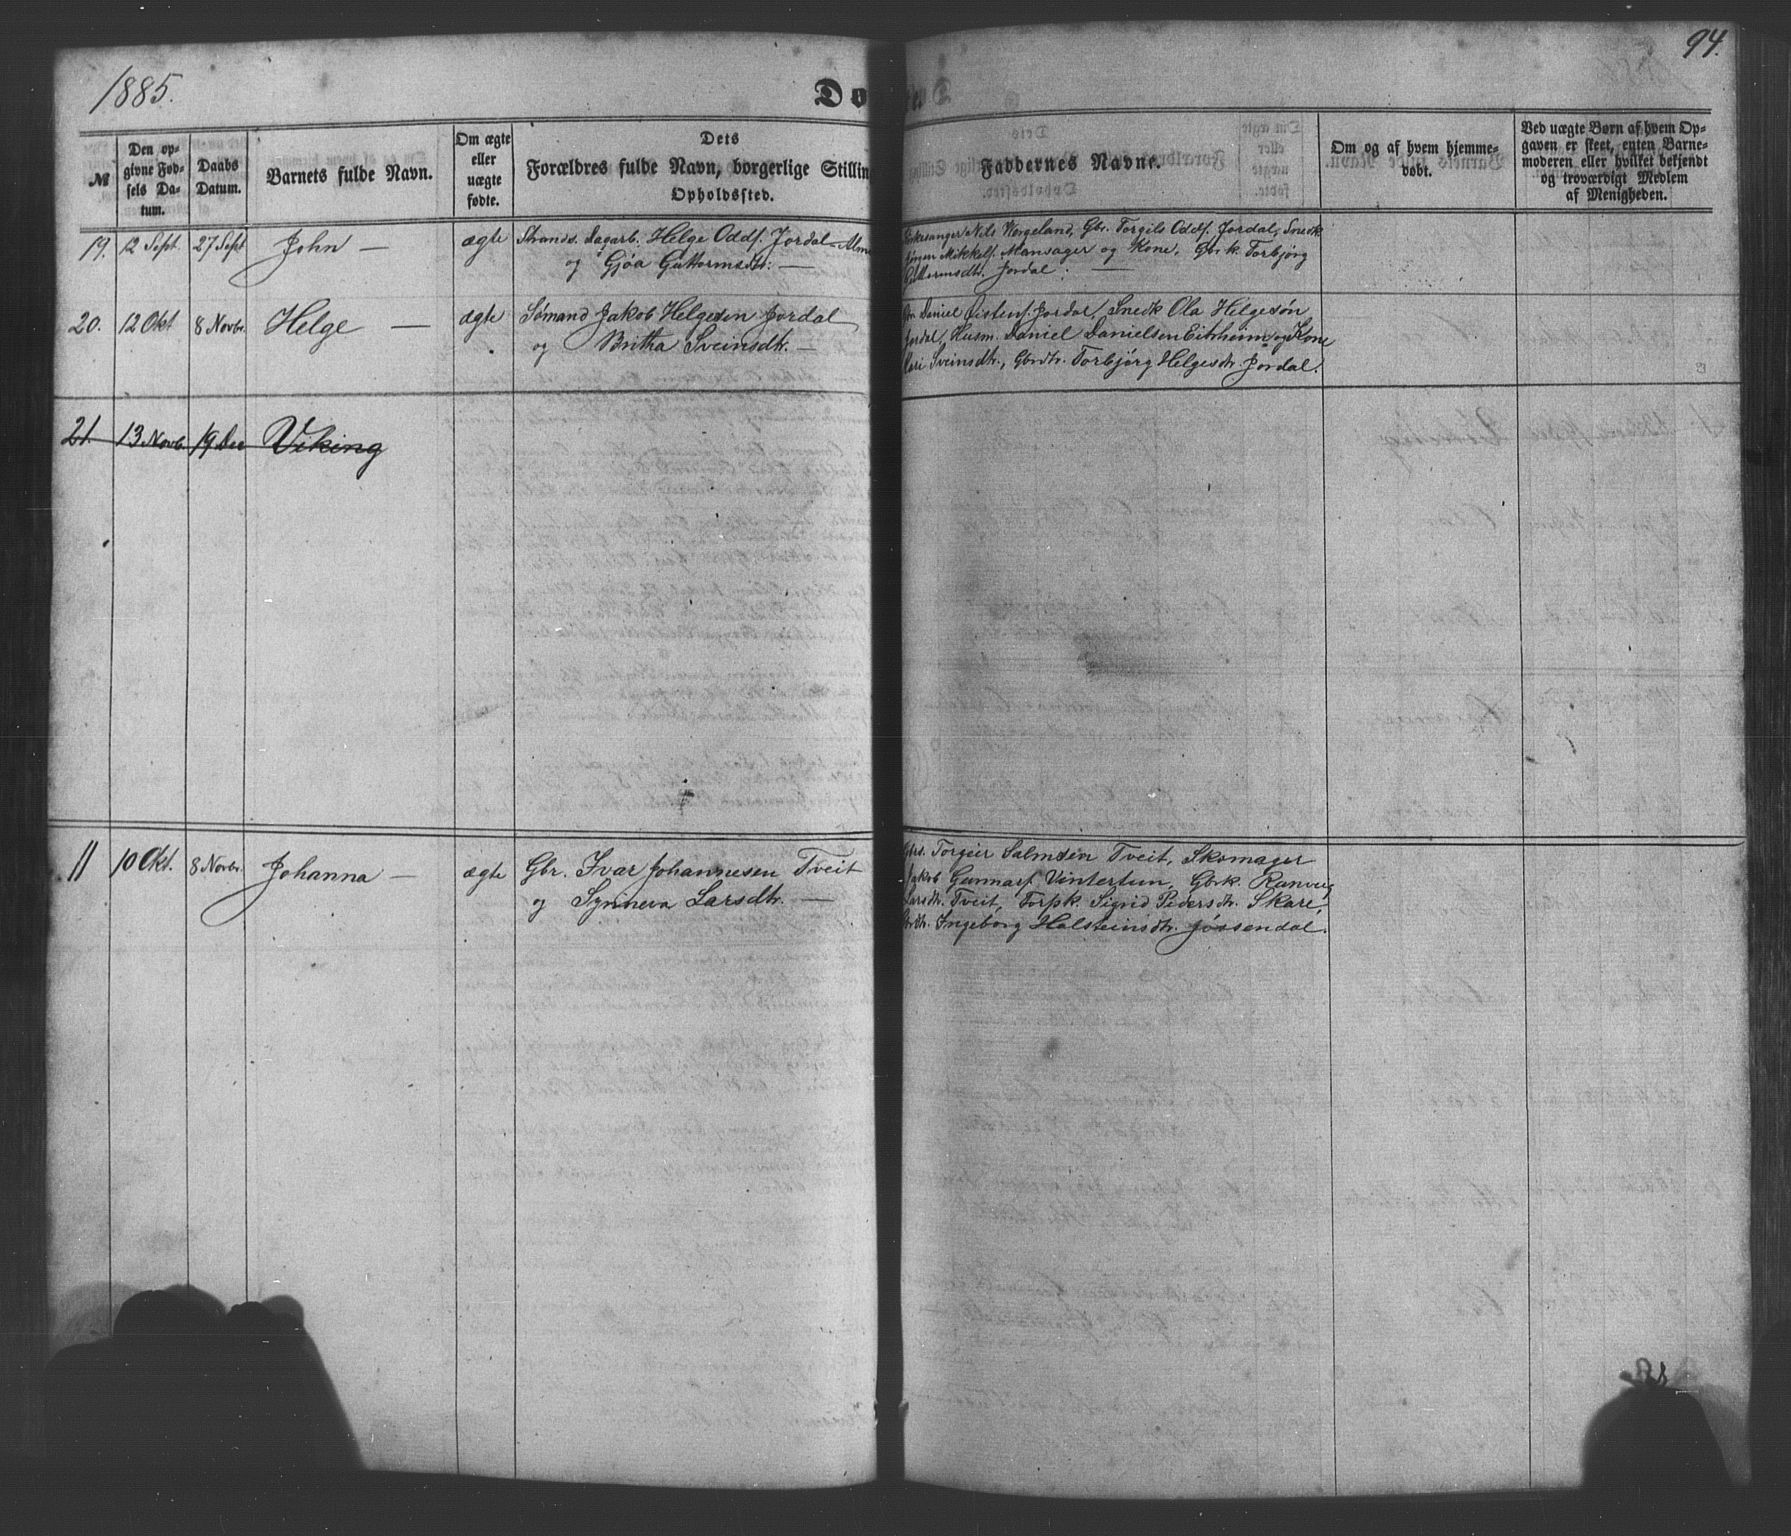 1885.
94.
Dø
№
Den op-
givne Fød-
sels Da-
tum.
Daabs
Datum.
Barnets fulde Navn.
Om ægte
eller
uægte
fødte.
Dets
Forældres fulde Navn, borgerlige Stillin
Opholdssted.
Faddernes Navne.
Om og af hvem hjemme-
døbt.
Ved uægte Børn af hvem Op-
gaven er skeet, enten Barne-
moderen eller hvilket bekjendt
og troværdigt Medlem
af Menigheden.
19. 12 Sept. 27 Sept John — ægte Strands. Dagarb. Helge Oddsf. Jordal - Alme
og Gjøa Guttormsdtr. —
Kirkesanger Nils Vergeland, Gbr. Torgils Oddsf. Jordal, Snedk
Mikkelsf. Mansager og Kone, Gbrk. Torbjørg
Guttormsdtr. Jordal. —
20. 12 Okt 8 Novbr. Helge — ægte Sømand Jakob Helgesen Jordal
og Britha Sveinsdtr. —
Daniel Eistensf. Jordal, Snedk Ola Helgesøn
Jordal, Husm. Daniel Danielsen Eitrheim og Kone
Kari Sveinsdtr., Gbrdtr. Torbjørg Helgesdtr. Jordal.
21. 13 Novb. 19 Dec Viking
11 10 Okt. 8 Novbr. Johanna — ægte Gbr. Ivar Johannesen Tveit
og Synneva Larsdtr. —
Gbrs. Torgeir Salmsen Tveit, Skomager
Jakob Gunnarsf. Vintertun, Gbrk. Ranveig
Larsdtr. Tveit, Forpk. Sigrid Pedersdtr. Skare,
Gbrdtr. Ingeborg Halsteinsdtr. Jøssendal.